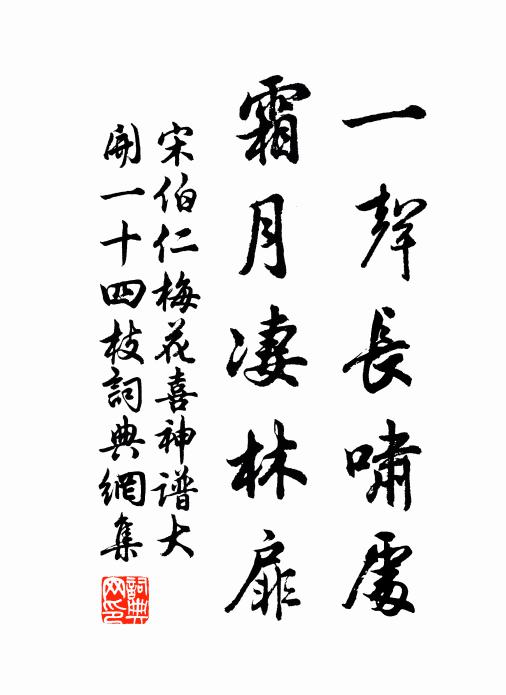 一聲長嘯處
霜月凄林扉
宋伯仁梅花喜神譜大
開一十四枝詞典網集
詞典網印